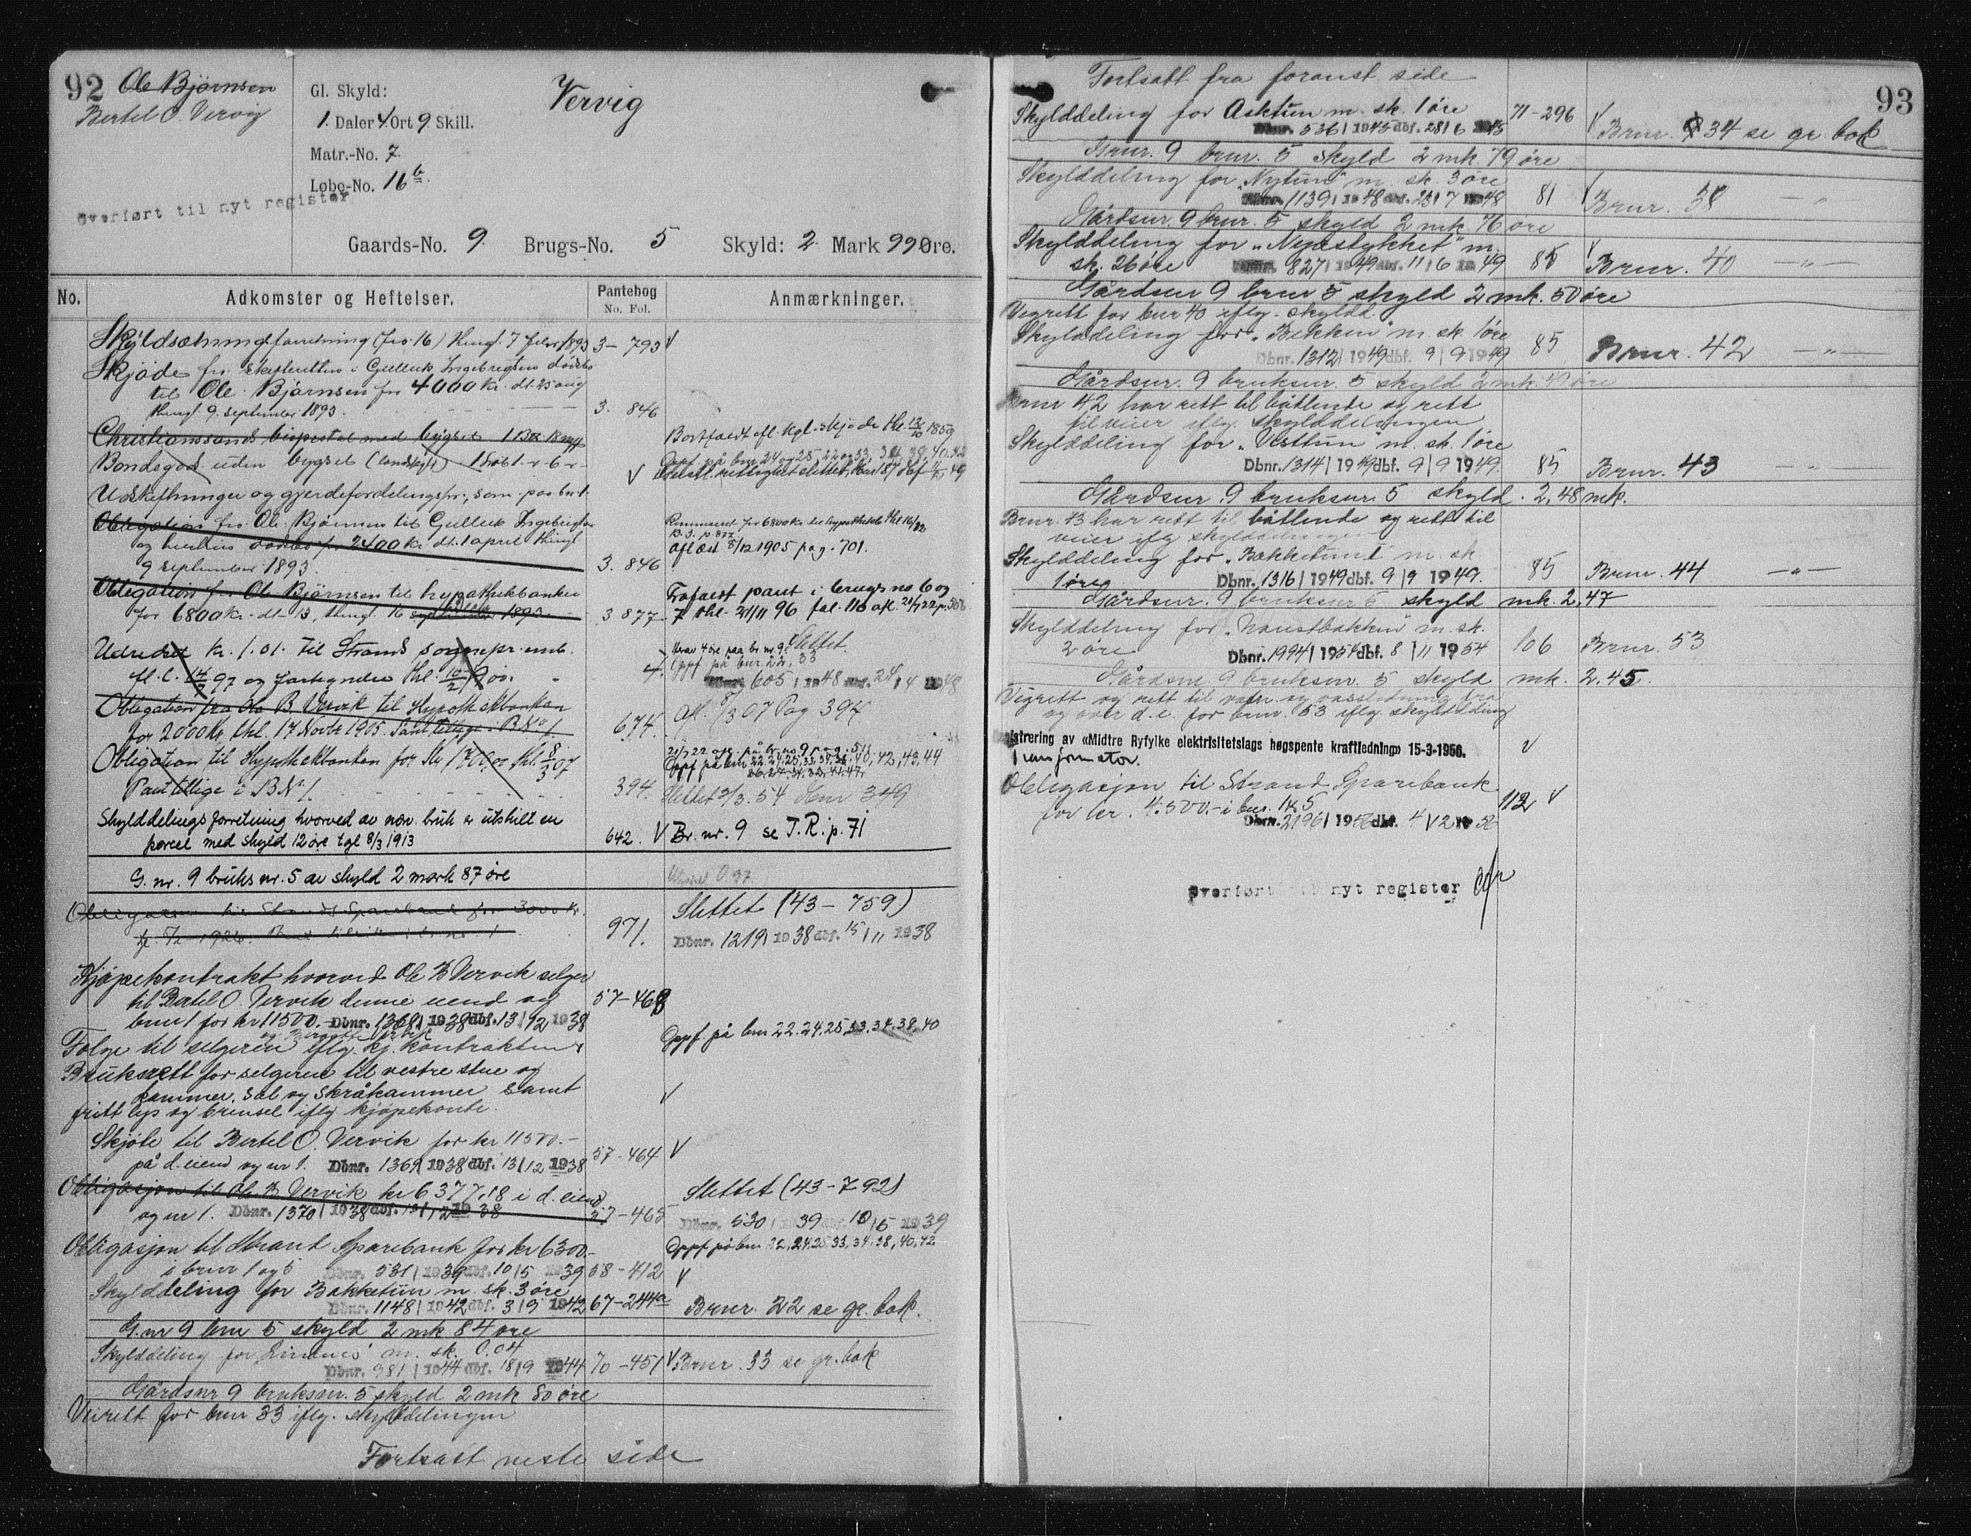 92
Ole Bjørnsen
Bertel O. Vervig
Gl. Skyld:
1 Daler 4 Ort 9 Skill.
Matr.-No. 7
Løbe-No. 16b.
Vervig
Overført til nyt register
Gaards-No. 9 Brugs-No. 5 Skyld: 2 Mark 99 Øre.
No. Adkomster og Heftelser. Pantebog No. Fol. Anmærkninger.
Skyldsætningsforretning (fra 16) thingl. 7 febr. 1893 3-793 V
Skjøde fra skifteretten i Gulleik Ingebrigtsens dødsbo
til Ole Bjørnsen for 4000 kr. dt. 25 aug
thingl. 9. september 1893. 3. 846
Christianssands bispestol med bygsel
Bortfaldt efl. kgl. skjøde thl. 1859
Bondegods uden bygsel (landskyld)
Oppf på bnr 24 og 25, 22 og 33, 34, 38, 40, 42
Udskiftninger og gjerdefordelingsfr., som paa br. 1.
Obligation fra Ole Bjørnsen til Gulleik Ingebrigtsens
dødsbo for 2400 kr. dt. 1 april thingl.
9 september 1893. 3. 846
Aflæst 5/12 1905 pag. 701.
Obligation fra Ole Bjørnsen til hypothekbanken
for 6800 kr. dt. 13, thingl. 16 september 1893 3 877
Frafaldt pant i brugs no 6 og
7 thl. 21/11 96 fol. 116
Udredet kr. 1.01. til Strands sognepr. emb.
Slettet.
Oppf på bnr 22, 33
605 | 1948 dbf. 24 | 4 1948
Obligation fra Ole B. Vervik til Hypothekbanken
for 2000 Kr thl. 17 Novbr 1905. Pant tillige i B No 1. 674.
Afl. 8/3 07 Pag 394
Obligation til Hypothekbanken for Kr 1700,00 thl. 8/3 07
Pant tillige i B No 1. 394.
Slettet 2/3. 54
Skylddelingsforretning hvorved av nærv. bruk er utskilt en
parcel med skyld 12 øre tgl 8/3 1913 642. V Br. nr. 9 se T.R. p. 71
G. nr. 9 bruks nr. 5 av skyld 2 mark 87 øre
Obligasjon til Strand Sparebank for 3000 kr. 971.
Slettet (43 – 759)
Dbnr. 1219 | 1938 dbf. 15 | 11 1938
Kjøpekontrakt hvorved Ole B Vervik selger
til Bertel O. Vervik denne eiend og
bnr 1 for kr 11500.– Dbnr. 1368 | 1938 dbf. 13 | 12 1938
57-463
Folge til selgeren iflg. kj. kontrakten
Oppf. på bnr 22.24.25,33,34,38,40
Bruksrett for selgeren til vestre stue og
kammer, sal og skråkammer samt
fritt lys og brensel iflg kjøpekontr.
V
Skjøte til Bertel O. Vervik for kr 11500.–
på d. eiend og nr 1. Dbnr. 1369 | 1938 dbf. 13 | 12 1938 57-464 V
Obligasjon til Ole B Vervik kr 6377,18 i d. eiend
og nr 1. Dbnr. 1370 | 1938 dbf. 13 | 12 1938 57-465
Slettet (43-792)
Dbnr. 530 | 1939 dbf. 10 | 5 1939
Obligasjon til Strand Sparebank for kr 6300.–
i bnr 1 og 5 Dbnr. 531 | 1939 dbf. 10 | 5 1939 58-412 V
Oppf på bnr 22, 24, 25, 33, 34, 38, 40, 42
Skylddeling for Bakketun m. sk. 3 øre
Dbnr. 1148 | 1942 dbf. 3 | 9 1942 67-244a Brnr. 22 se gr. bok.
G. nr 9 bnr 5 skyld 2 mk 84 øre
Skylddeling for Lindnes m. sk. 0.04
Dbnr. 981 | 1944 dbf. 18 | 9 1944 70-451 V Brnr. 33 se gr. bok
Gårdsnr 9 bruksnr. 5 skyld 2 mk 80 øre
Veirett for bnr 33 iflg. skylddelingen
Fortsatt neste side
93
Fortsatt fra foranst. side
Skylddeling for Asktun m. sk. 1 øre 71-296
Dbnr. 536 | 1945 dbf. 28 | 6 1945 V Brnr. 34 se gr. bok
Grnr. 9 brnr. 5 skyld 2 mk 79 øre
Skylddeling for "Nytun" m. sk. 3 øre
Dbnr. 1139 | 1948 dbf. 28 | 7 1948 81 V Brnr. 38 – " –
Gårdsnr. 9 brnr. 5 skyld 2 mk 76 øre
Skylddeling for "Nyestykket" m.
sk. 26 øre 827 | 1949 dbf. 11 | 6 1949 85 V Brnr. 40 – " –
Gårdsnr 9 brnr 5 skyld 2 mk. 50 øre
Veirett for bnr 40 iflg. skyldd.
Skylddeling for "Bekken" m sk 1 øre
Dbnr. 1312 | 1949 dbf. 9 | 9 1949 85 Brnr. 42 – " –
Gårdsnr. 9 bruksnr. 5 skyld 2 mk 49 øre
Brnr 42 har rett til båtlende og rett
til veier iflg. skylddelingen
Skylddeling for "Vesttun" m. sk. 1 øre
Dbnr. 1314 | 1949 dbf. 9 | 9 1949. 85 Brnr. 43 – " –
Gårdsnr. 9 bruksnr. 5 skyld. 2,48 mk.
Brnr. 43 har rett til båtlende og rett til
veier iflg skylddelingen
Skylddeling for "Bakketunet" m. sk
1 øre Dbnr. 1316 | 1949 dbf. 9 | 9 1949. 85 Brnr. 44 – " –
Gårdsnr. 9 bruksnr 5 skyld mk. 2,47
Skylddeling for "Naustbakken" m. sk.
2 øre Dbnr. 1994 | 1954 dbf. 8 | 11 1954 106 Brnr. 53
Gårdsnr 9 bruksnr. 5 skyld mk. 2.45.
Veirett og rett til vatn og vassledning fra
og over d.e. for bnr. 53 iflg skylddeling
Registrering av «Midtre Ryfylke elektrisitetslags høgspente kraftledning» 15-3-1950. V
Transformator.
Obligasjon til Strand Sparebank
for kr. 4.500.– i bnr. 1 & 5 112 V
Dbnr. 2196 | 1956 dbf. 4 | 12 1956
Overført til nyt register